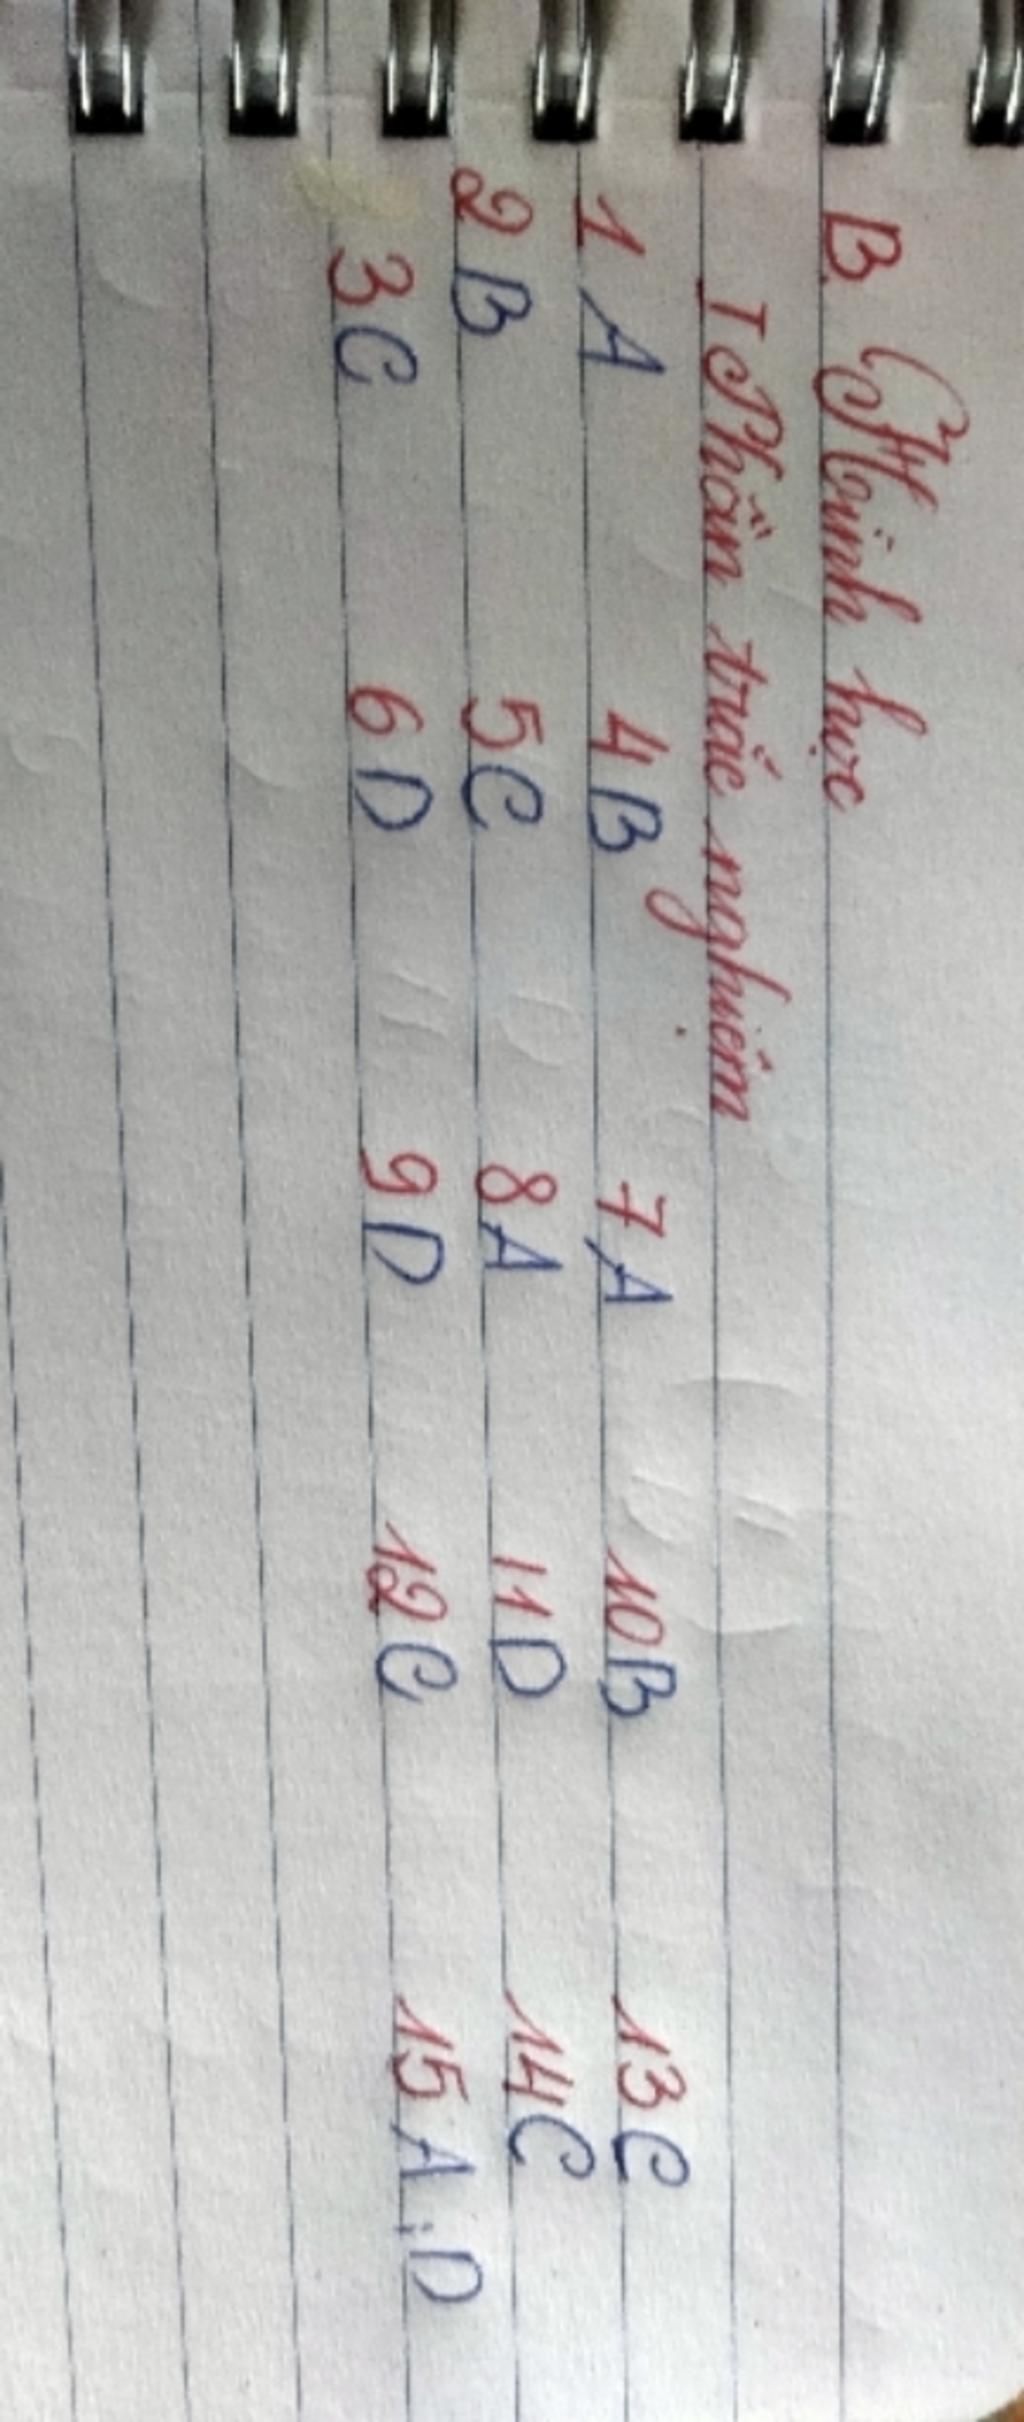 B. Hình học
I Phần trắc nghiệm
1 A 4 B 7 A 10 B 13 C
2 B 5 C 8 A 11 D 14 C
3 C 6 D 9 D 12 C 15 A ; D